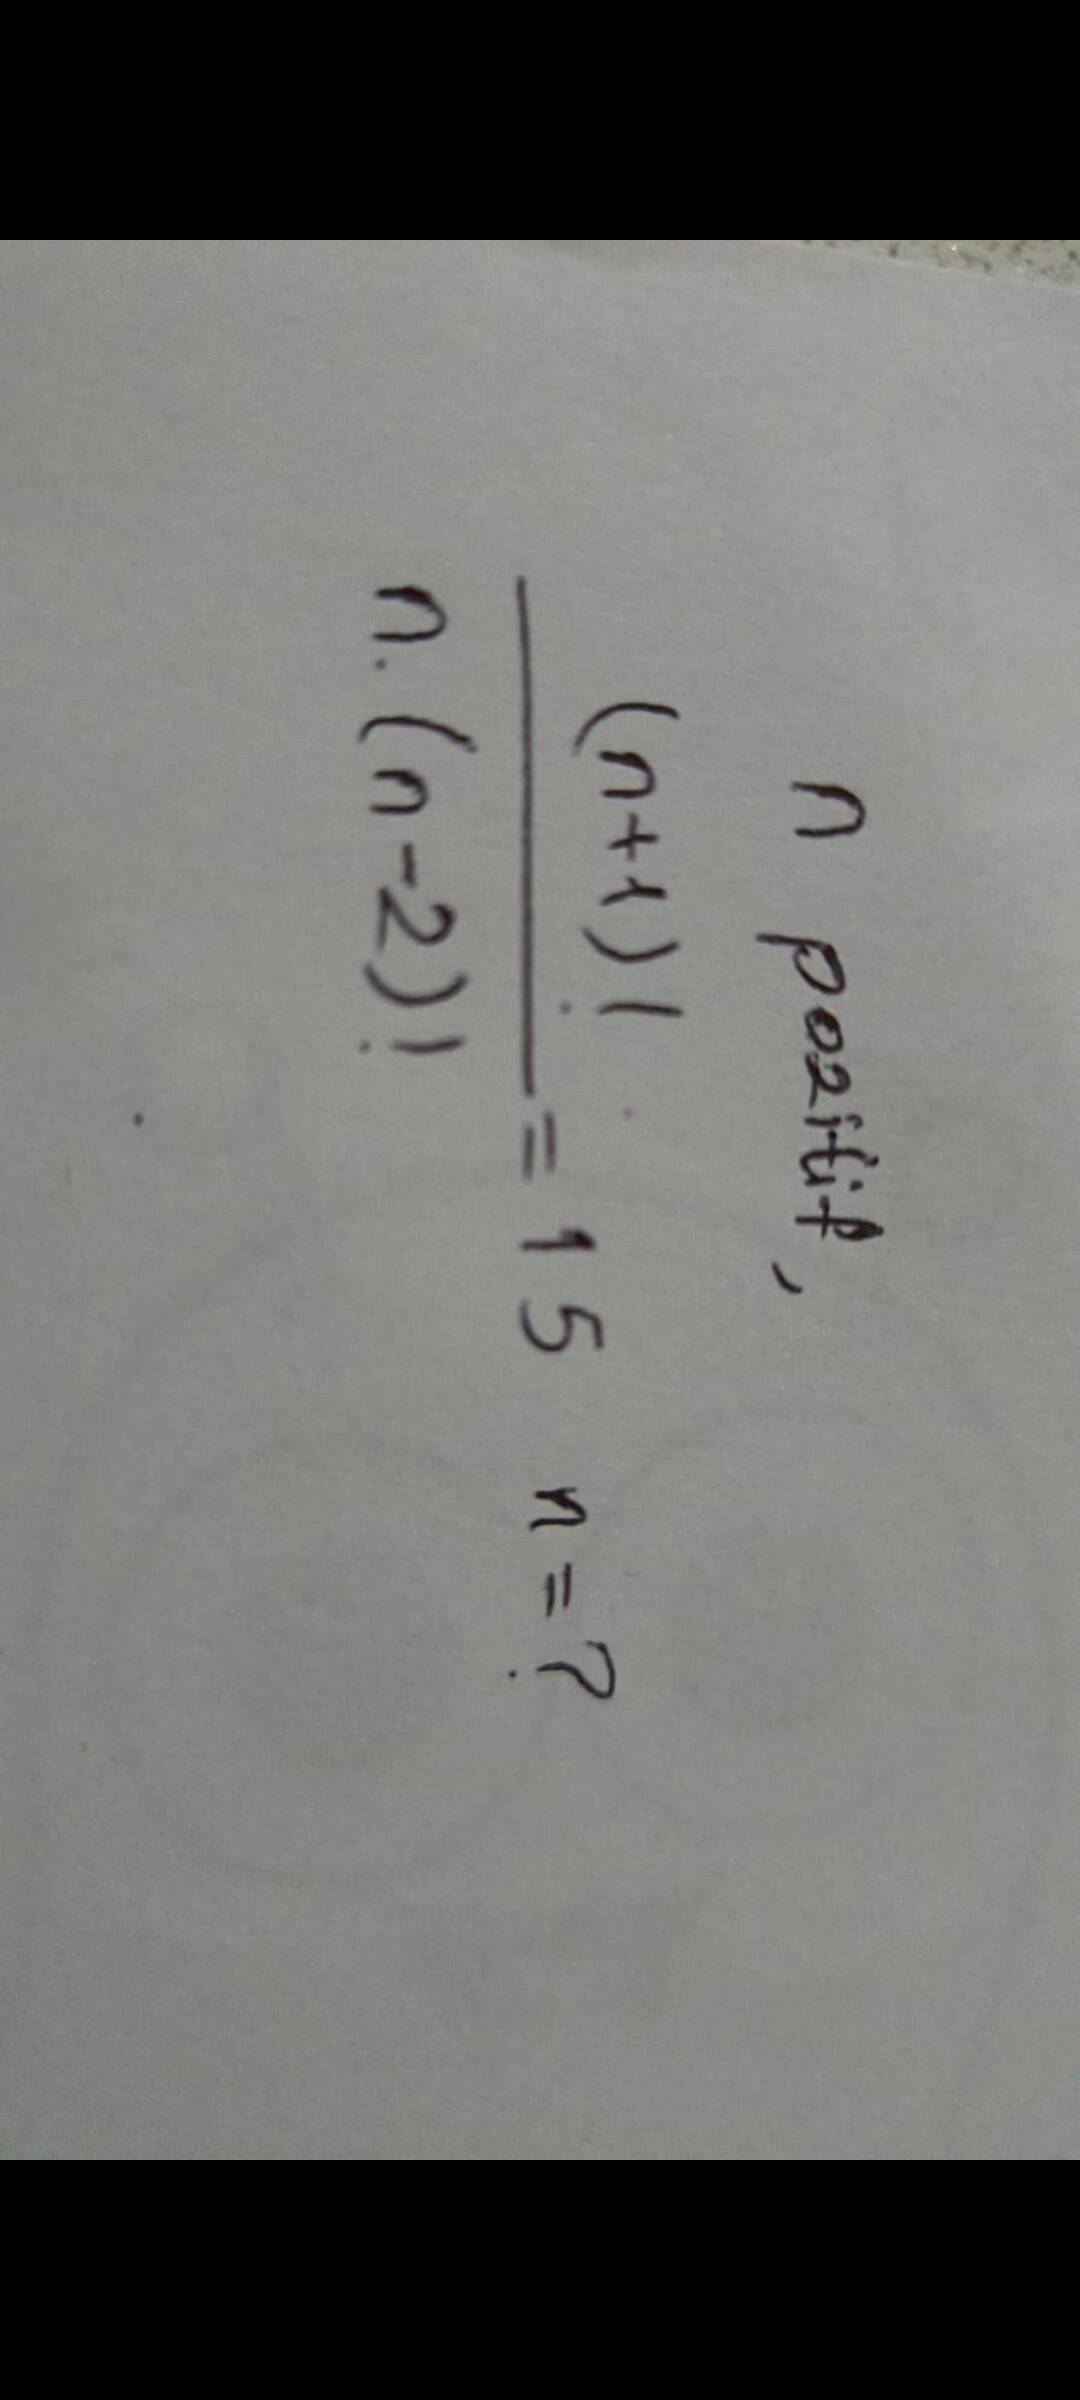 n pozitif,
(n+1)!
n.(n-2)! = 15 n = ?